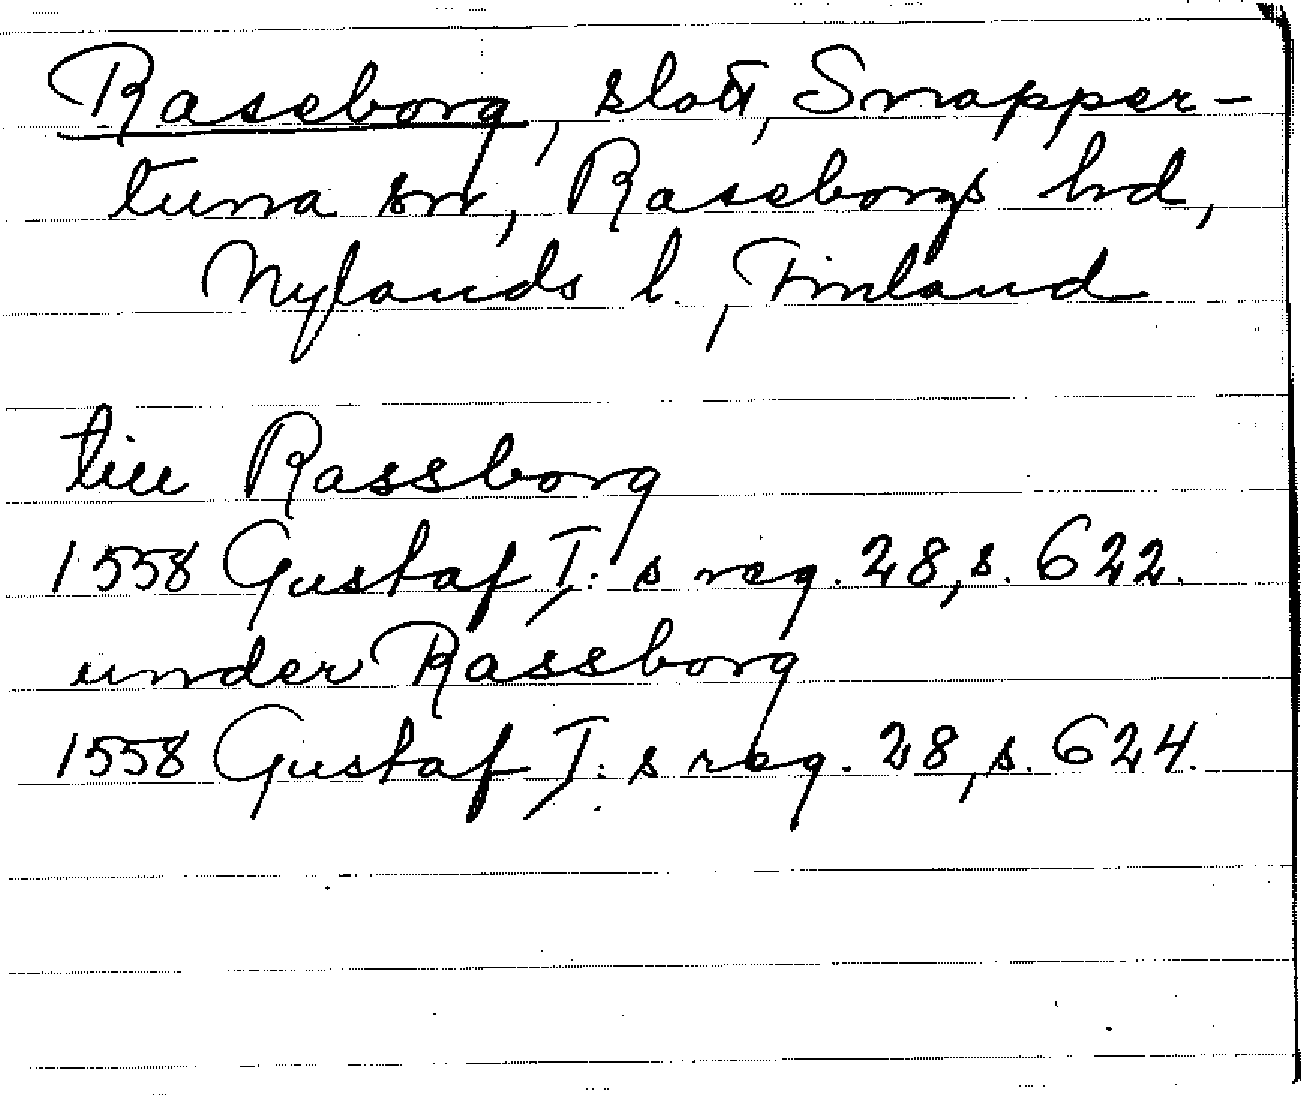 Raseborg, slott, Snapper-
tuna sn, Raseborgs hd,
Nylands l., Finland
till Rassborg
1558 Gustaf I: s reg. 28, s. 622.
under Rassborg
1558 Gustaf I: s reg. 28, s. 624.